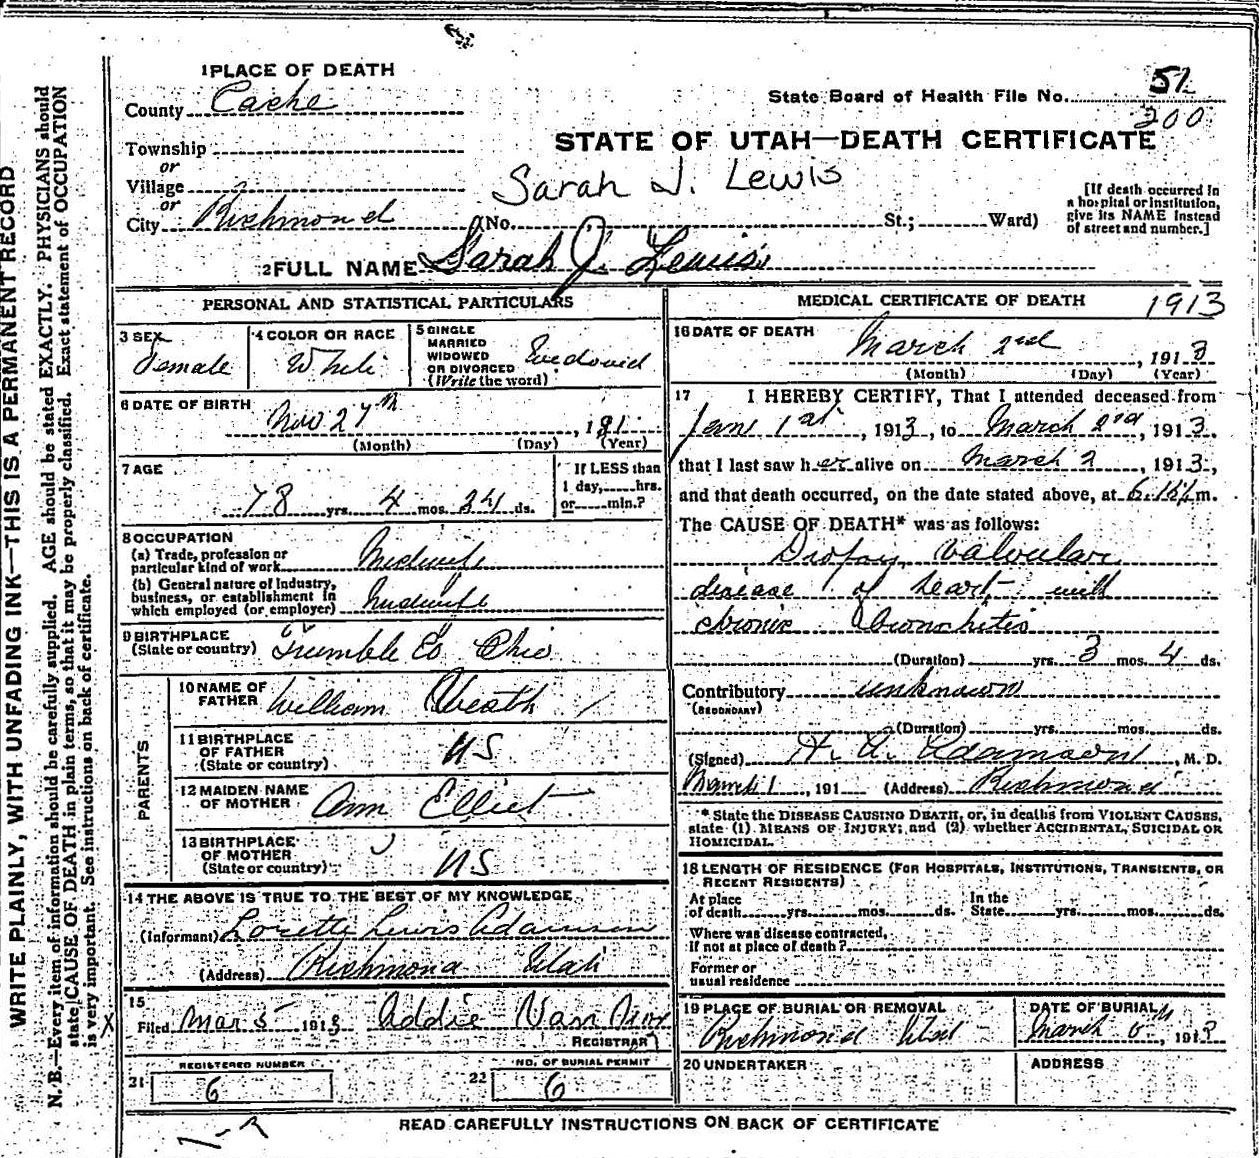 WRITE PLAINLY, WITH UNFADING INK—THIS IS A PERMANENT RECORD
N. B.—Every item of information should be carefully supplied. AGE should be stated EXACTLY. PHYSICIANS should
state CAUSE OF DEATH in plain terms, so that it may be properly classified. Exact statement of OCCUPATION
is very important. See instructions on back of certificate.
1 PLACE OF DEATH
County Cache
Township
or
Village
or
City Richmond
State Board of Health File No. 51
200
STATE OF UTAH—DEATH CERTIFICATE
Sarah J. Lewis
(No. St.; Ward)
[If death occurred in
a hospital or institution,
give its NAME instead
of street and number.]
2 FULL NAME Sarah J. Lewis
PERSONAL AND STATISTICAL PARTICULARS
3 SEX
Female
4 COLOR OR RACE
White
5 SINGLE
MARRIED
WIDOWED
OR DIVORCED
(Write the word)
Widowed
6 DATE OF BIRTH
Nov 27th, 181
(Month) (Day) (Year)
7 AGE
78 yrs. 4 mos. 24 ds.
If LESS than
1 day, hrs.
or min.?
8 OCCUPATION
(a) Trade, profession or
particular kind of work Midwife
(b) General nature of Industry,
business, or establishment in
which employed (or employer) Midwife
9 BIRTHPLACE
(State or country) Trumble Co Ohio
PARENTS
10 NAME OF
FATHER William Cheath
11 BIRTHPLACE
OF FATHER
(State or country) US
12 MAIDEN NAME
OF MOTHER Ann Elliet
13 BIRTHPLACE
OF MOTHER
(State or country) US
14 THE ABOVE IS TRUE TO THE BEST OF MY KNOWLEDGE
(Informant) Lorette Lewis Adamson
(Address) Richmond Utah
15
Filed Mar 5 1913 Addie Van
REGISTRAR
REGISTERED NUMBER
21 6
NO. OF BURIAL PERMIT
22 6
MEDICAL CERTIFICATE OF DEATH 1913
16 DATE OF DEATH
March 2nd, 1913
(Month) (Day) (Year)
17 I HEREBY CERTIFY, That I attended deceased from
Jan 1st, 1913, to March 2nd, 1913,
that I last saw her alive on March 2, 1913,
and that death occurred, on the date stated above, at m.
The CAUSE OF DEATH* was as follows:
Dropsy, Valvular
disease of heart with
chronic Bronchitis
(Duration) yrs. 3 mos. 4 ds.
Contributory unknown
(SECONDARY)
(Duration) yrs. mos. ds.
(Signed) H. A. Adamson, M. D.
March 1, 191 (Address) Richmond
* State the DISEASE CAUSING DEATH, or, in deaths from VIOLENT CAUSES,
state (1) MEANS OF INJURY; and (2) whether ACCIDENTAL, SUICIDAL OR
HOMICIDAL.
18 LENGTH OF RESIDENCE (FOR HOSPITALS, INSTITUTIONS, TRANSIENTS, OR
RECENT RESIDENTS)
At place
of death yrs. mos. ds.
In the
State yrs. mos. ds.
Where was disease contracted,
if not at place of death?
Former or
usual residence
19 PLACE OF BURIAL OR REMOVAL
Richmond Utah
DATE OF BURIAL
March 6th, 1913
20 UNDERTAKER
ADDRESS
READ CAREFULLY INSTRUCTIONS ON BACK OF CERTIFICATE